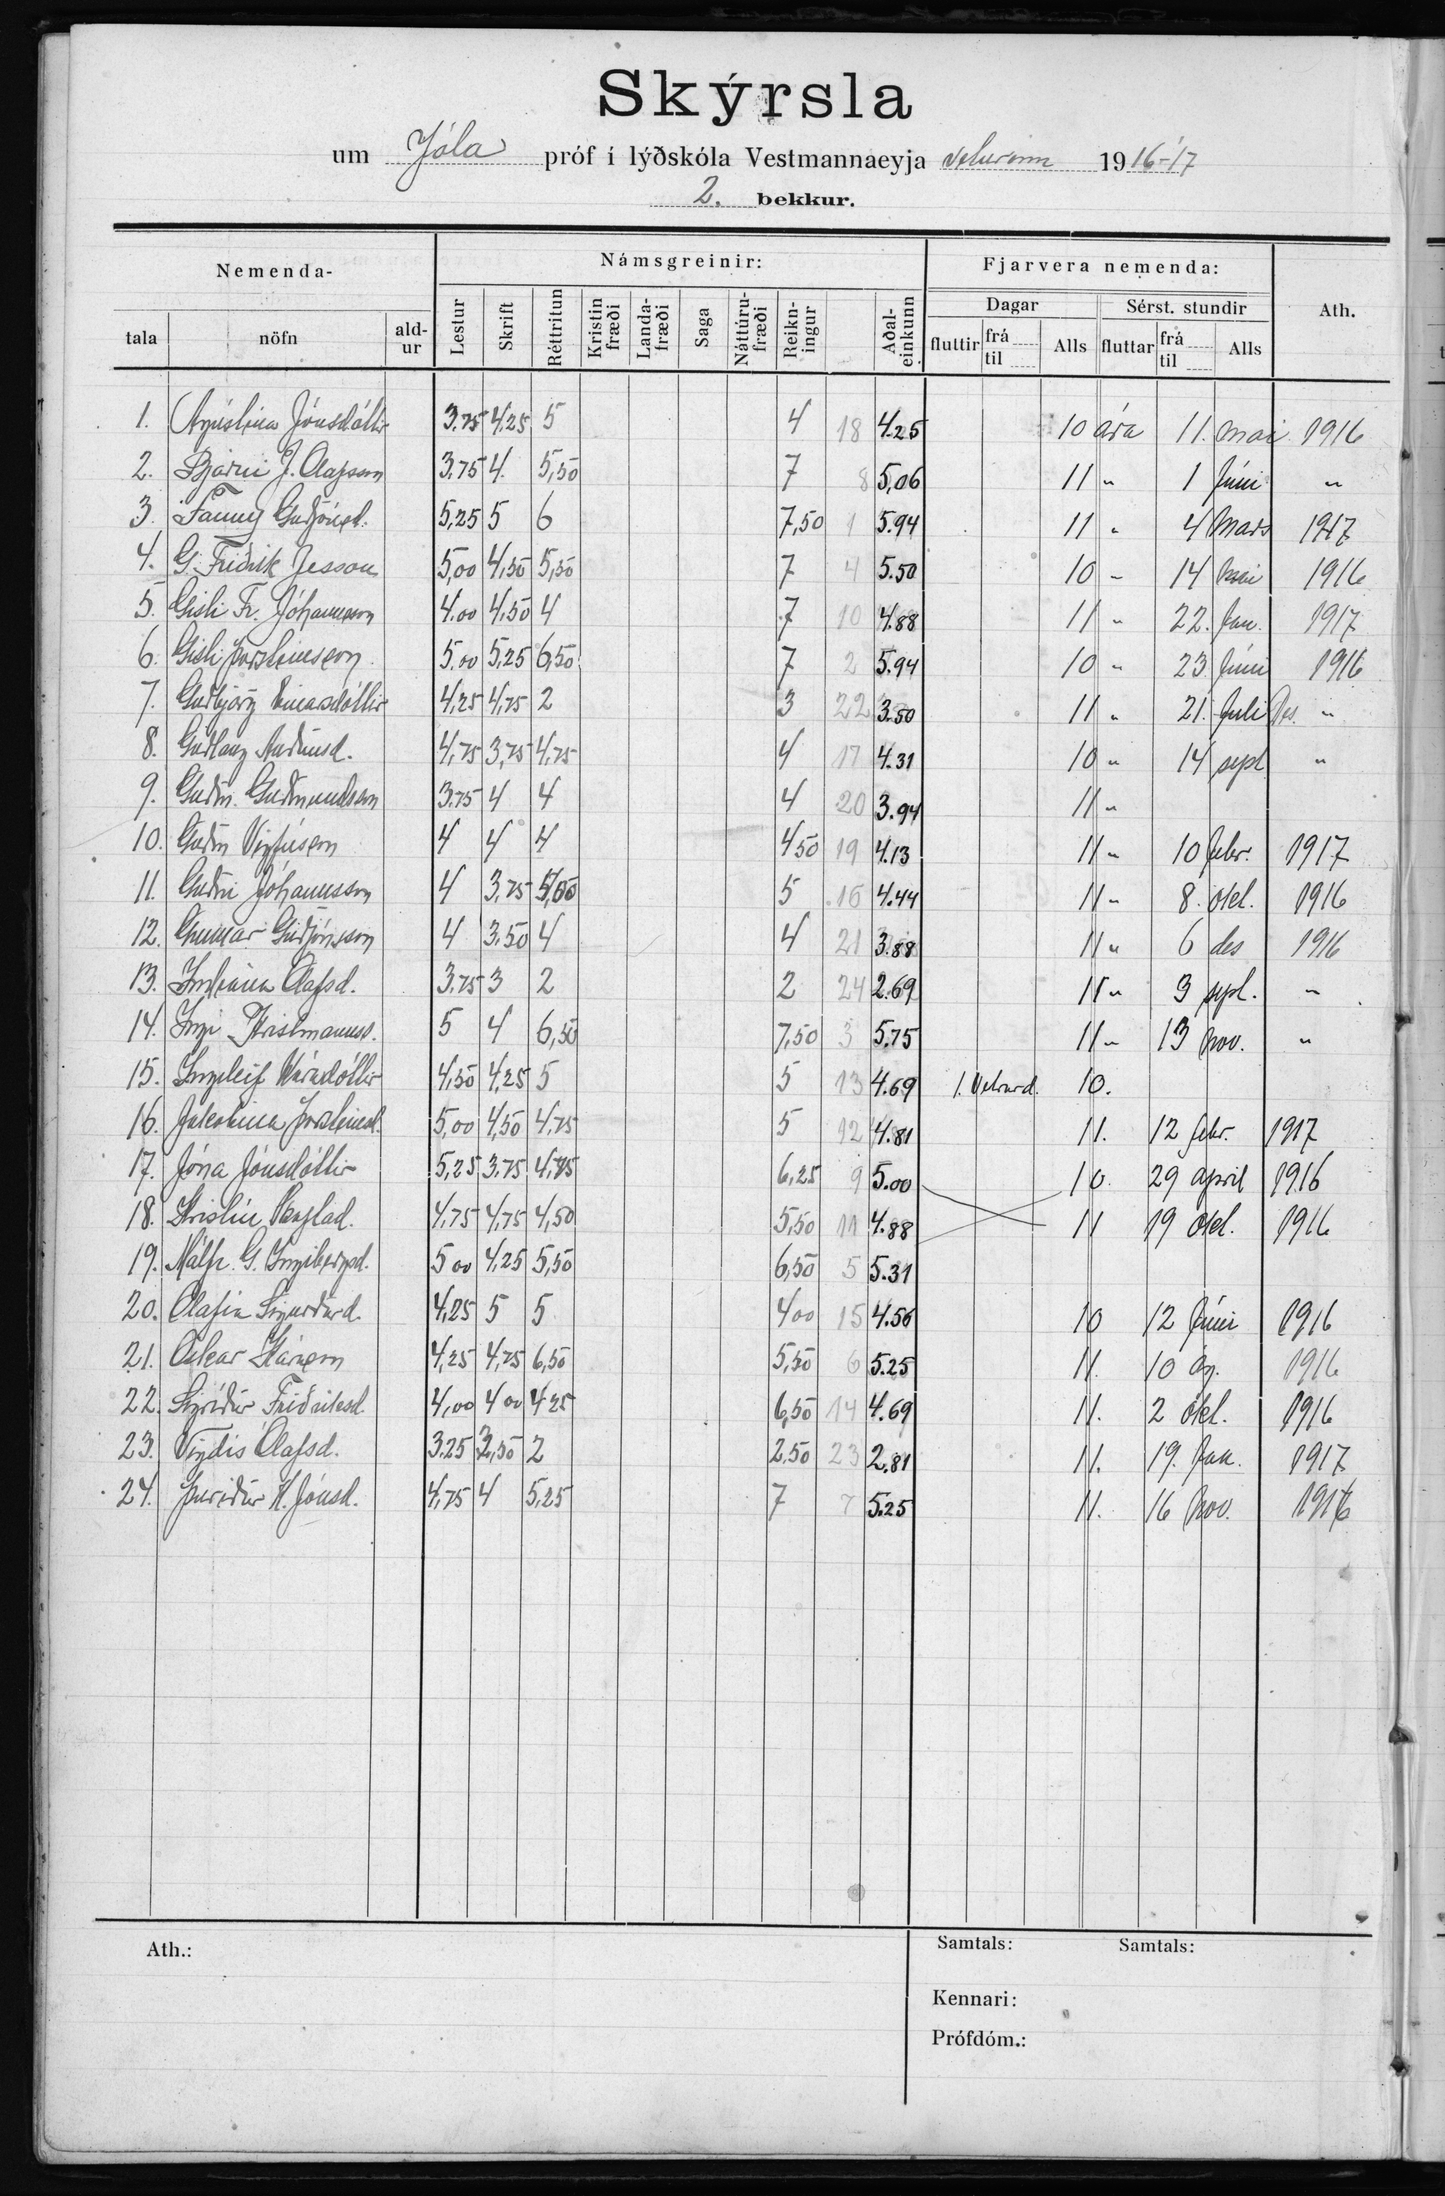 Skýrsla
um Jóla próf í lýðskóla Vestmannaeyja veturinn 1916-17
2. bekkur.
Nemenda- Námsgreinir: Fjarvera nemenda:
Dagar Sérst. stundir Ath.
tala nöfn ald-ur Lestur Skrift Réttritun Kristin fræði Landa-fræði Saga Náttúru-fræði Reikn-ingur Aðal-einkunn fluttir frá til Alls fluttar frá til Alls
1. Agústína Jónsdóttir 3.75 4.25 5 4 18 4.25 10 ára 11. mai 1916
2. Bjarni J. Olafsson 3.75 4. 5,50 7 8 5,06 11 " 1 Júni "
3. Fanny Guðjónsd. 5,25 5 6 7,50 1 5.94 11 " 4 Mars 1917
4. G. Friðrik Jesson 5,00 4,50 5,50 7 4 5.50 10 " 14 Mai 1916
5. Gisli Fr. Jóhannsson 4.00 4,50 4 7 10 4.88 11 " 22. Jan. 1917
6. Gisli Þorsteinsson 5.00 5,25 6,50 7 2 5.94 10 " 23. Júni 1916
7. Guðbjörg Einarsdóttir 4,25 4,75 2 3 22 3.50 11 " 21. Juli Des. "
8. Guðlaug Auðunsd. 4,75 3,75 4,75 4 17 4.31 10 " 14 sept "
9. Guðm. Guðmundsson 3.75 4 4 4 20 3.94 11 "
10. Guðm Vigfússon 4 4 4 4 50 19 4.13 11 " 10 febr. 1917
11. Guðni Jóhannsson 4 3,75 5,00 5 16 4.44 11 " 8. okt. 1916
12. Gunnar Guðjónsson 4 3.50 4 4 21 3.88 11 " 6 des 1916
13. Olafsd. 3.75 3 2 2 24 2.69 11 " 3 sept. "
14. Ingi Kristmanns. 5 4 6,50 7,50 3 5.75 11 " 13 Nov. "
15. Ingileif Káradóttir 4,50 4,25 5 5 13 4.69 1. Vetrard. 10.
16. Jakobina Þorsteinsd. 5,00 4,50 4,75 5 12 4.81 11. 12 febr. 1917
17. Jóna Jónsdóttir 5,25 3.75 4,75 6,25 9 5.00 10. 29 april 1916
18. Kristín 4,75 4,75 4,50 5,50 11 4.88 11 19 okt. 1916
19. Málfr. G. Ingibergsd. 5 00 4,25 5,50 6,50 5 5.31
20. Olafia Sigurðard. 4,25 5 5 4 00 15 4.56 10 12 Júni 1916
21. Oskar Kárason 4,25 4,75 6,50 5,50 6 5.25 11. 10 ág. 1916
22. Sigríður Friðriksd. 4,00 4 00 4 25 6,50 14 4.69 11. 2 okt. 1916
23. Vigdís Olafsd. 3.25 3,50 2 2,50 23 2.81 11. 19. Jan. 1917
24. Þuriður K. Jónsd. 4,75 4 5,25 7 7 5.25 11. 16 Nov. 1916
Ath.: Samtals: Samtals:
Kennari:
Prófdóm.: